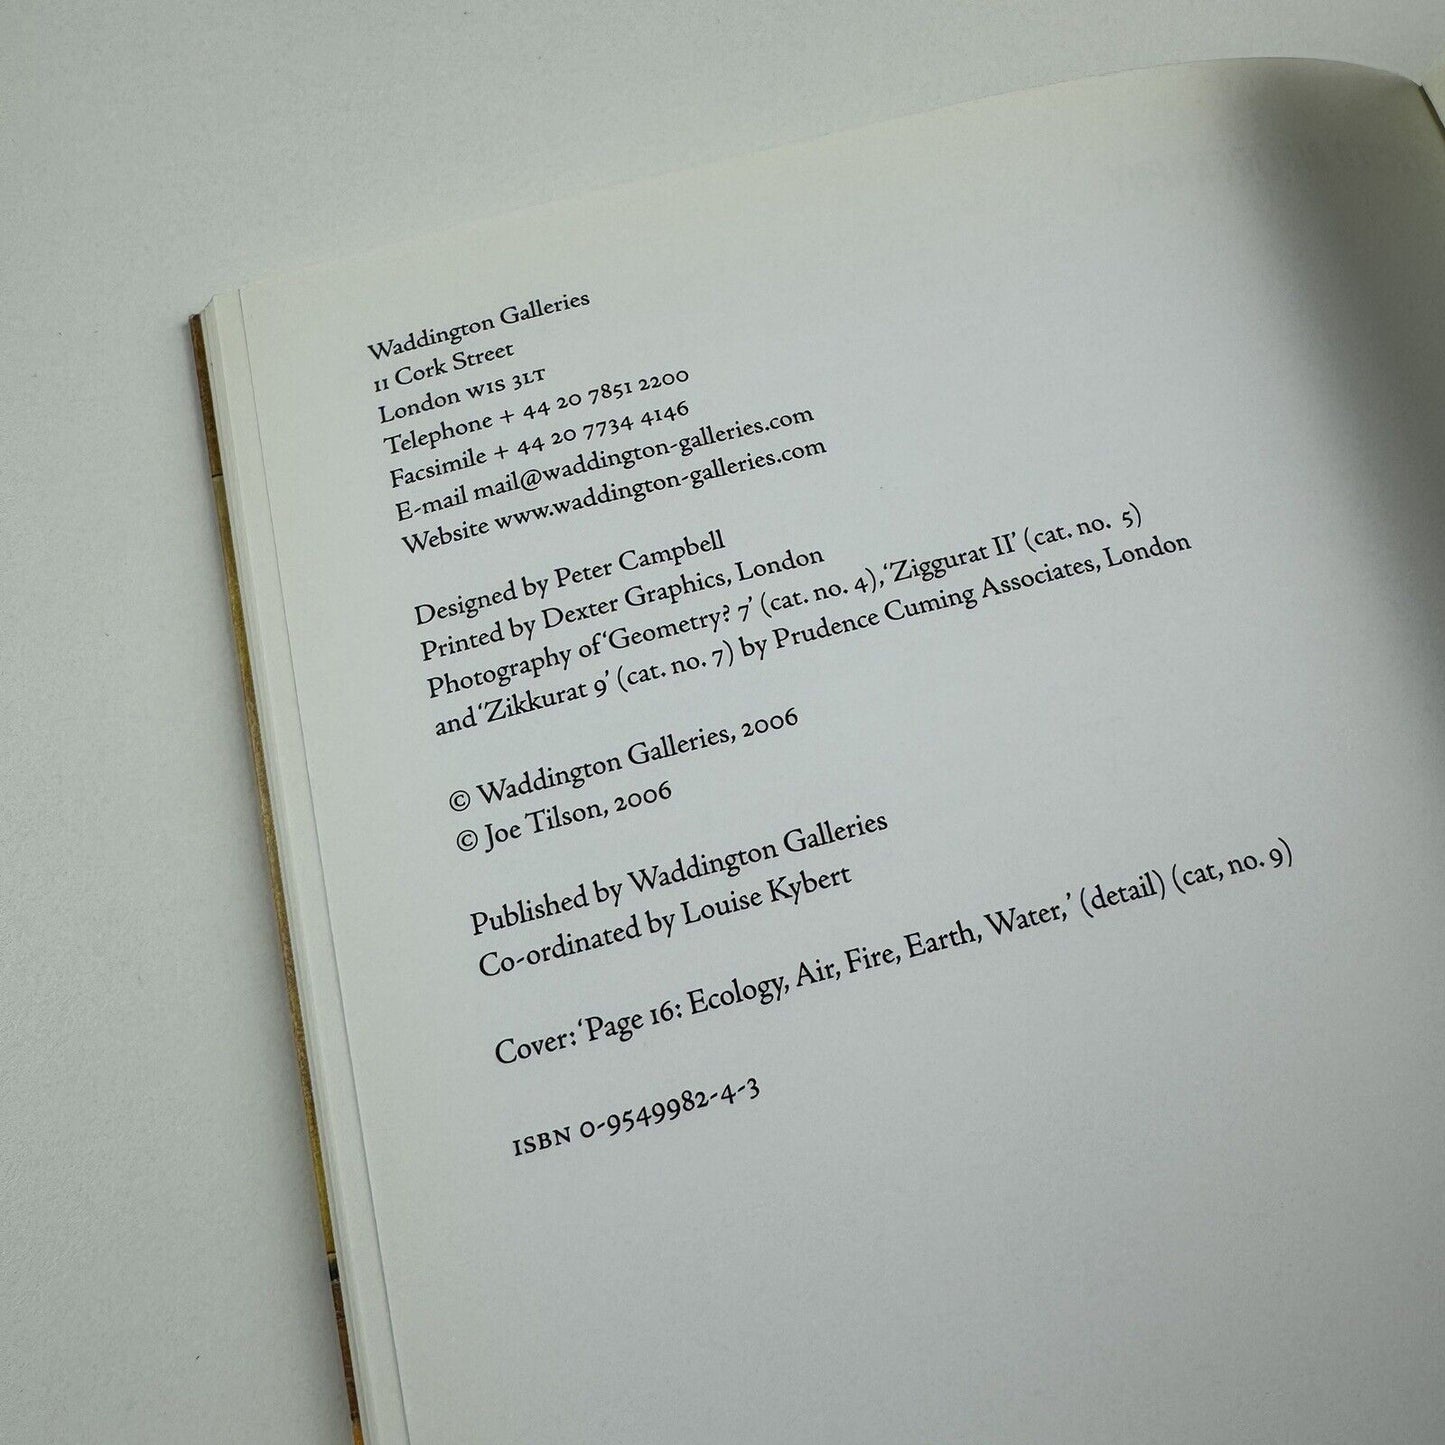 Waddington Galleries
11 Cork Street
London W1S 3LT
Telephone + 44 20 7851 2200
Facsimile + 44 20 7734 4146
E-mail mail@waddington-galleries.com
Website www.waddington-galleries.com
Designed by Peter Campbell
Printed by Dexter Graphics, London
Photography of ‘Geometry? 7’ (cat. no. 4), ‘Ziggurat II’ (cat. no. 5)
and ‘Zikkurat 9’ (cat. no. 7) by Prudence Cuming Associates, London
© Waddington Galleries, 2006
© Joe Tilson, 2006
Published by Waddington Galleries
Co-ordinated by Louise Kybert
Cover: ‘Page 16: Ecology, Air, Fire, Earth, Water,’ (detail) (cat, no. 9)
ISBN 0-9549982-4-3